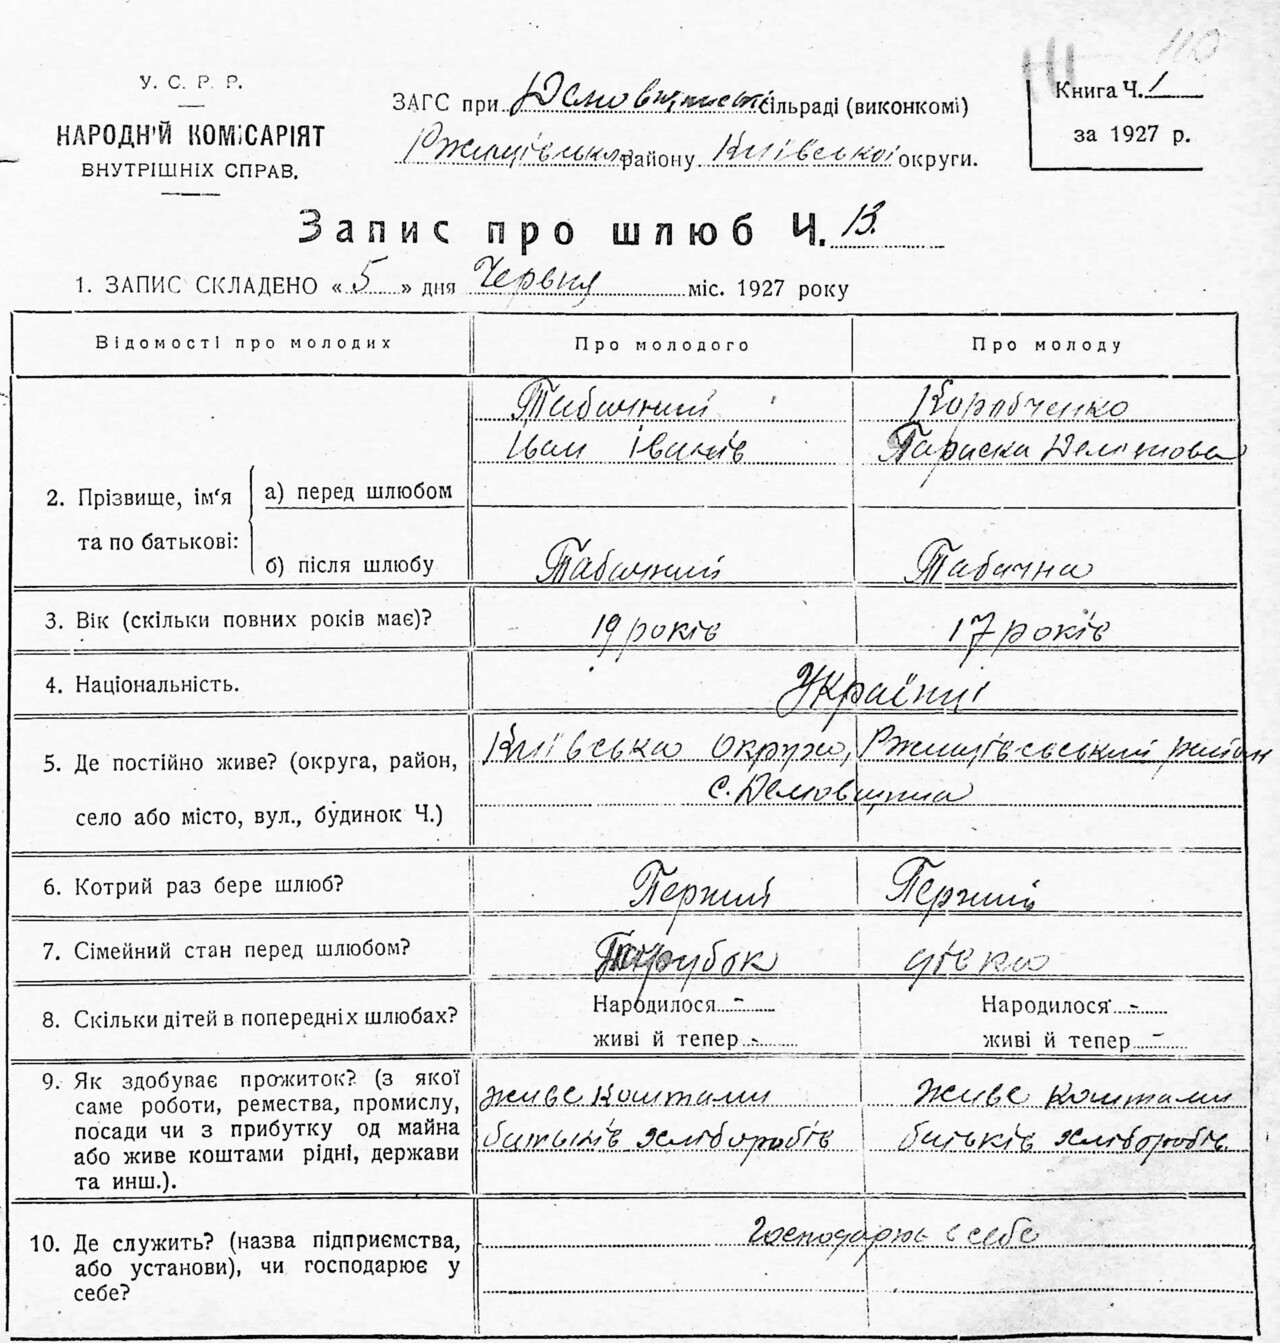 110
У. С. Р. Р.
НАРОДНІЙ КОМІСАРІЯТ
ВНУТРІШНІХ СПРАВ.
ЗАГС при Демовщинській сільраді (виконкомі)
Ржищівського району Київської округи.
Книга Ч. 1
за 1927 р.
Запис про шлюб Ч. 13.
1. ЗАПИС СКЛАДЕНО « 5 » дня Червня міс. 1927 року
Відомості про молодих Про молодого Про молоду
Табачний Корябченко
Іван Іванів Параска
2. Прізвище, ім‘я та по батькові:
а) перед шлюбом
б) після шлюбу Табачний Табачна
3. Вік (скільки повних років має)? 19 років 17 років
4. Національність. Українці
5. Де постійно живе? (округа, район, Київська округа, Ржищівський район
с. Демовщина
село або місто, вул., будинок Ч.)
6. Котрий раз бере шлюб? Перший Перший
7. Сімейний стан перед шлюбом? Парубок дівка
8. Скільки дітей в попередніх шлюбах? Народилося - Народилося -
живі й тепер - живі й тепер -
9. Як здобуває прожиток? (з якої
саме роботи, ремества, промислу,
посади чи з прибутку од майна
або живе коштами рідні, держави
та инш.).
живе коштами живе коштами
батьків хліборобів батьків хліборобів
10. Де служить? (назва підприємства,
або установи), чи господарює у
себе?
Господарює в себе